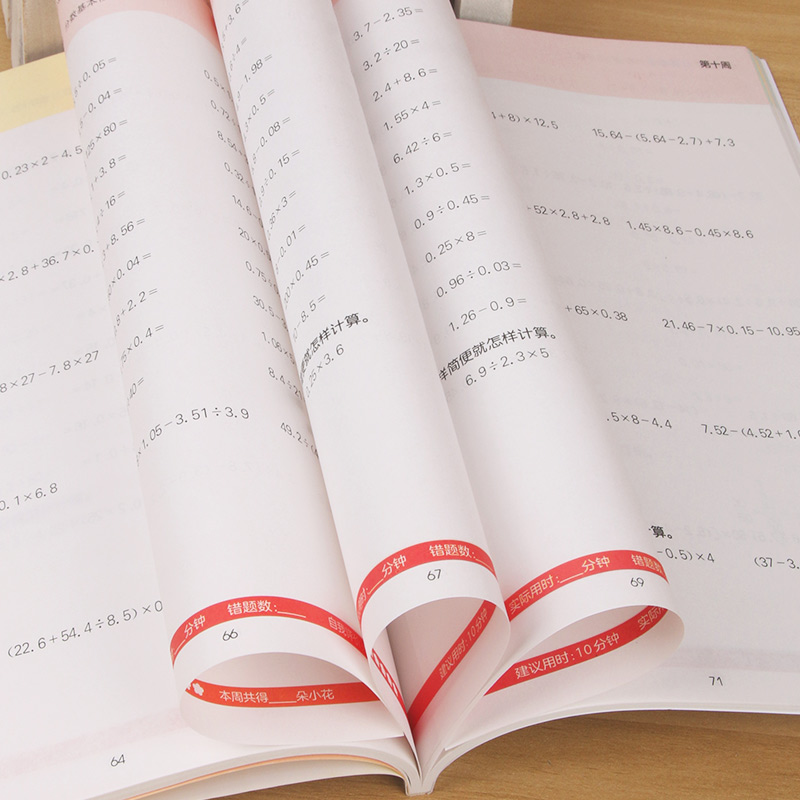 0.23×2-4.5
×2.8+36.7×0.
8×27-7.8×27
0.1×6.8
(22.6+54.4÷8.5)×0
64
÷0.05=
×80=
+3.8=
÷16=
+8.56=
×0.04=
+2.2=
×0.4=
×1.05-3.51÷3.9
分钟 错题数:
66
本周共得 朵小花
3.6=
÷4=
-1.98=
×0.5=
-0.08=
÷0.15=
×3=
0.01=
×0.45=
-8.5=
便就怎样计算。
×3.6
分钟 错题数:
67
建议用时:10分钟
3.7-2.35=
3.2÷20=
2.4+8.6=
1.55×4=
6.42÷6=
1.3×0.5=
0.9÷0.45=
0.25×8=
0.96÷0.03=
1.26-0.9=
样简便就怎样计算。
6.9÷2.3×5
实际用时: 分钟 错题
69
建议用时:10分钟 实际
第十周
+8)×12.5 15.64-(5.64-2.7)+7.3
-52×2.8+2.8 1.45×8.6-0.45×8.6
+65×0.38 21.46-7×0.15-10.95
.5×8-4.4 7.52-(4.52+1.
算。
-0.5)×4 (37-3.
71